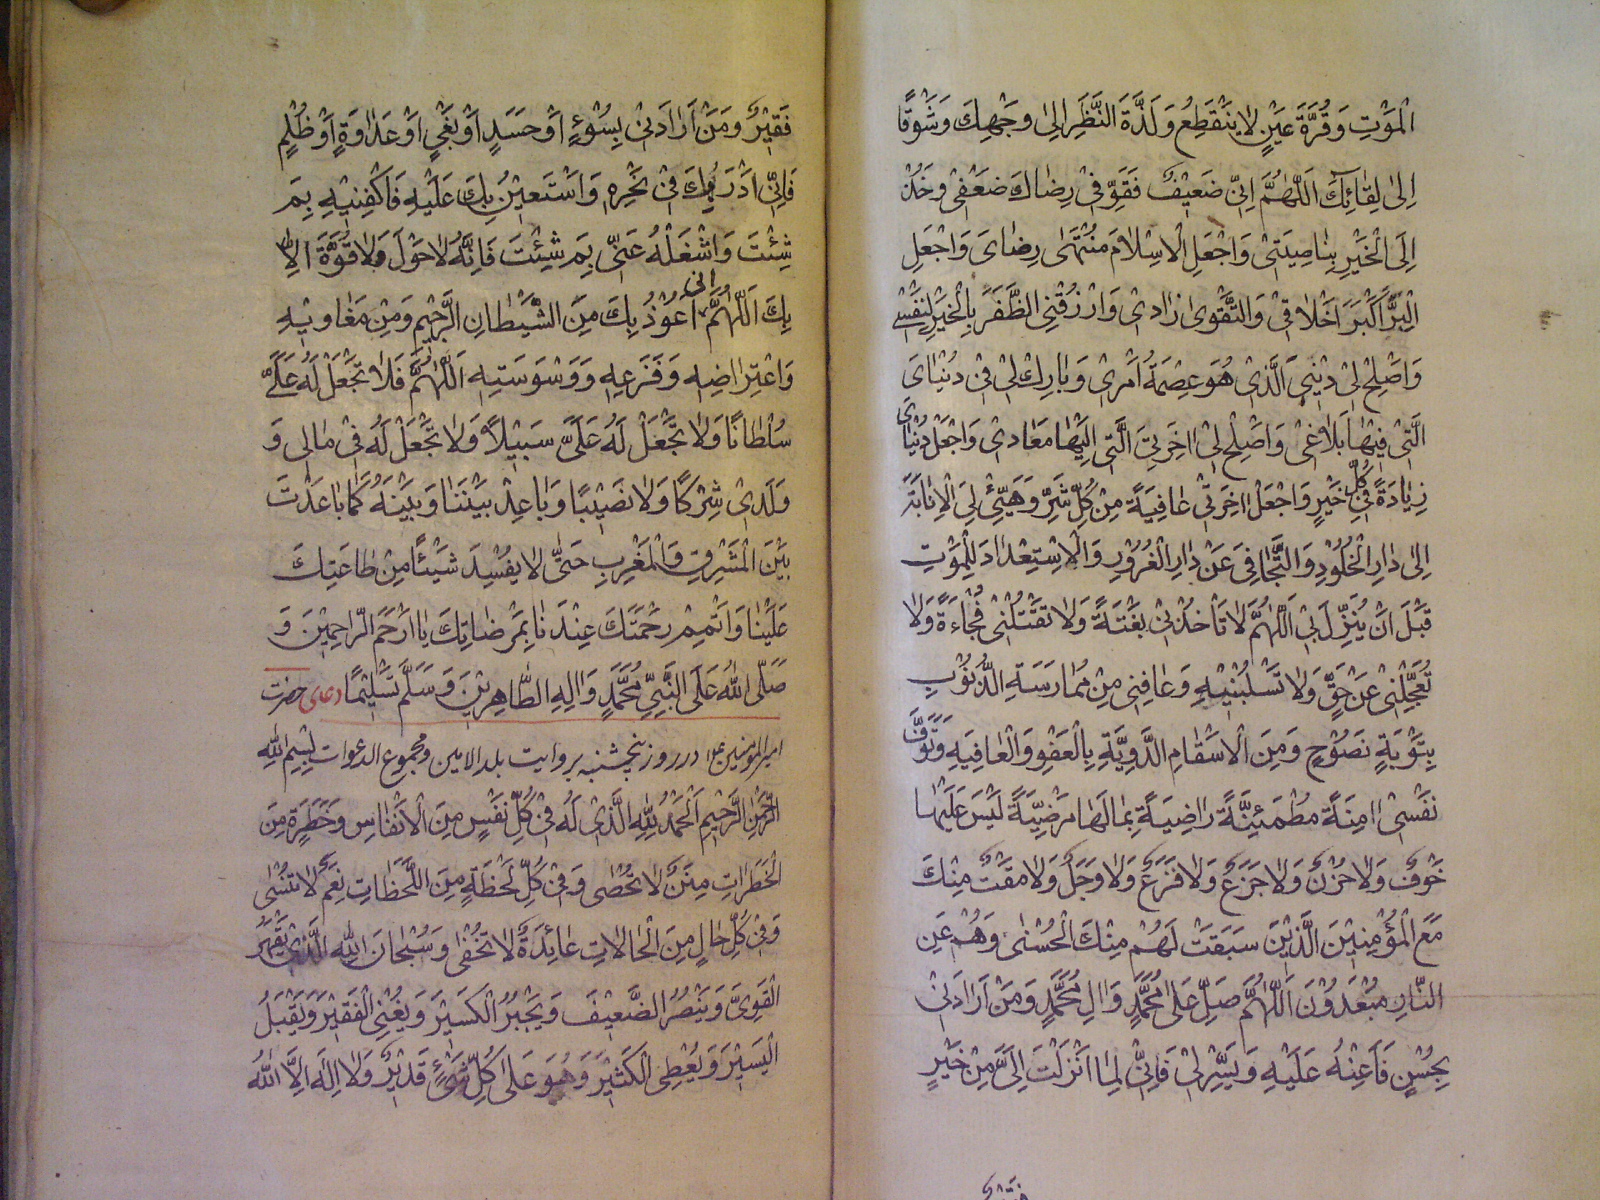 الْمَوْتِ وَقُرَّةَ عَيْنٍ لَا يَنْقَطِعُ وَلَذَّةَ النَّظَرِ اِلىٰ وَجْهِكَ وَشَوْقًا
اِلىٰ لِقٰائِكَ اَللّٰهُمَّ اِنِّى ضَعِيْفٌ فَقَوِّ فِىْ رِضٰاكَ ضَعْفِىْ وَخُذْ
اِلَى الْخَيْرِ بِنٰاصِيَتِىْ وَاجْعَلِ الْاِسْلٰامَ مُنْتَهٰى رِضٰاىَ وَاجْعَلِ
الْبِرَّ اَكْبَرَ اَخْلٰاقِىْ وَالتَّقْوىٰ زٰادِىْ وَارْزُقْنِى الظَّفَرَ بِالْخَيْرِ لِنَفْسِىْ
وَاَصْلِحْ لِىْ دِيْنِىَ الَّذِىْ هُوَ عِصْمَةُ اَمْرِىْ وَبٰارِكْ لِىْ فِىْ دُنْيٰاىَ
الَّتِىْ فِيْهٰا بَلٰاغِىْ وَاَصْلِحْ لِىْ اٰخِرَتِىَ الَّتِى اِلَيْهٰا مَعٰادِىْ وَاجْعَلْ دُنْيٰاىَ
زِيٰادَةً فِىْ كُلِّ خَيْرٍ وَاجْعَلْ اٰخِرَتِىْ عٰافِيَةً مِنْ كُلِّ شَرٍّ وَهَيِّئْ لِىَ الْاِنٰابَةَ
اِلىٰ دٰارِ الْخُلُوْدِ وَالتَّجٰافِىَ عَنْ دٰارِ الْغُرُوْرِ وَالْاِسْتِعْدٰادَ لِلْمَوْتِ
قَبْلَ اَنْ يُنَزِّلَ بِىْ اَللّٰهُمَّ لَا تَاْخُذْنِىْ بَغْتَةً وَلٰا تَقْتُلْنِىْ فُجْاءَةً وَلٰا
تُعَجِّلْنِىْ عَنْ حَقٍّ وَلٰا تَسْلُبْنِيْهِ وَعٰافِنِى مِنْ مُمٰارَسَةِ الذُّنُوْبِ
بِتَوْبَةٍ نَصُوْحٍ وَمِنَ الْاَسْقٰامِ الدَّوِيَّةِ بِالْعَفْوِ وَالْعٰافِيَةِ وَتَوَفَّ
نَفْسِىْ اٰمِنَةً مُطْمَئِنَّةً رٰاضِيَةً بِمٰا لَهٰا مَرْضِيَّةً لَيْسَ عَلَيْهٰا
خَوْفٌ وَلٰا حُزْنٌ وَلٰا جَزَعٌ وَلٰا فَزَعٌ وَلٰا وَجَلٌ وَلٰا مَقْتٌ مِنْكَ
مَعَ الْمُؤْمِنِيْنَ الَّذِيْنَ سَبَقَتْ لَهُمْ مِنْكَ الْحُسْنٰى وَهُمْ عَنِ
النّٰارِ مُبْعَدُوْنَ اَللّٰهُمَّ صَلِّ عَلىٰ مُحَمَّدٍ وَاٰلِ مُحَمَّدٍ وَمَنْ اَرٰادَنِىْ
بِحُسْنٍ فَاَعِنْهُ عَلَيْهِ وَيَسِّرْ لِىْ فَاِنِّىْ لِمٰا اَنْزَلْتَ اِلَىَّ مِنْ خَيْرٍ
فَقِيْرٌ وَمَنْ اَرٰادَنِىْ بِسُوْءٍ اَوْ حَسَدٍ اَوْ بَغْىٍ اَوْ عَدٰاوَةٍ اَوْ ظُلْمٍ
فَاِنِّى اَدْرَئُ بِكَ فِىْ نَحْرِهِ وَاَسْتَعِيْنُ بِكَ عَلَيْهِ فَاكْفِنِيْهِ بِمَ
شِئْتَ وَاشْغَلْهُ عَنِّى بِمَ شِئْتَ فَاِنَّهُ لَا حَوْلَ وَلٰا قُوَّةَ اِلّٰا
بِكَ اَللّٰهُمَّ انى اَعُوْذُ بِكَ مِنَ الشَّيْطٰانِ الرَّجِيْمِ وَمِنْ مَغٰاوِيْهِ
وَاعْتِرٰاضِهِ وَفَزَعِهِ وَوَسْوَسَتِهِ اَللّٰهُمَّ فَلٰا تَجْعَلْ لَهُ عَلَىَّ
سُلْطٰانًا وَلٰا تَجْعَلْ لَهُ عَلَىَّ سَبِيْلًا وَلٰا تَجْعَلْ لَهُ فِىْ مٰالِى وَ
وَلَدِىْ شِرْكًا وَلٰا نَصِيْبًا وَبٰاعِدْ بَيْنَنٰا وَبَيْنَهُ كَمٰا بٰاعَدْتَ
بَيْنَ الْمَشْرِقِ وَالْمَغْرِبِ حَتّٰى لَا يُفْسِدَ شَيْئًا مِنْ طٰاعَتِكَ
عَلَيْنٰا وَاَتْمِمْ رَحْمَتَكَ عِنْدَنٰا بِمَرْضٰاتِكَ يٰا اَرْحَمَ الرّٰاحِمِيْنَ وَ
صَلَّى اللّٰهُ عَلَى النَّبِىِّ مُحَمَّدٍ وَاٰلِهِ الطّٰاهِرِيْنَ وَسَلَّمَ تَسْلِيْمًا دعاى حضرت
امير المؤمنين ع در روز پنجشنبه بروايت بلد الامين و مجموع الدعوات بِسْمِ اللّٰهِ
الرَّحْمٰنِ الرَّحِيْمِ اَلْحَمْدُ لِلّٰهِ الَّذِىْ لَهُ فِىْ كُلِّ نَفَسٍ مِنَ الْاَنْفٰاسِ وَخَطْرَةٍ مِنَ
الْخَطَرٰاتِ مِنَنٌ لٰا تُحْصٰى وَفِىْ كُلِّ لَحْظَةٍ مِنَ اللَّحَظٰاتِ نِعَمٌ لٰا تُنْسٰى
وَفِىْ كُلِّ حٰالٍ مِنَ الْحٰالٰاتِ عٰائِدَةٌ لٰا تَخْفٰى وَسُبْحٰانَ اللّٰهِ الَّذِىْ يَقْهَرُ
الْقَوِىَّ وَيَنْصُرُ الضَّعِيْفَ وَيَجْبُرُ الْكَسِيْرَ وَيُغْنِى الْفَقِيْرَ وَيَقْبَلُ
الْيَسِيْرَ وَيُعْطِى الْكَثِيْرَ وَهُوَ عَلىٰ كُلِّ شَىْءٍ قَدِيْرٌ وَلٰا اِلٰهَ اِلَّا اللّٰهُ